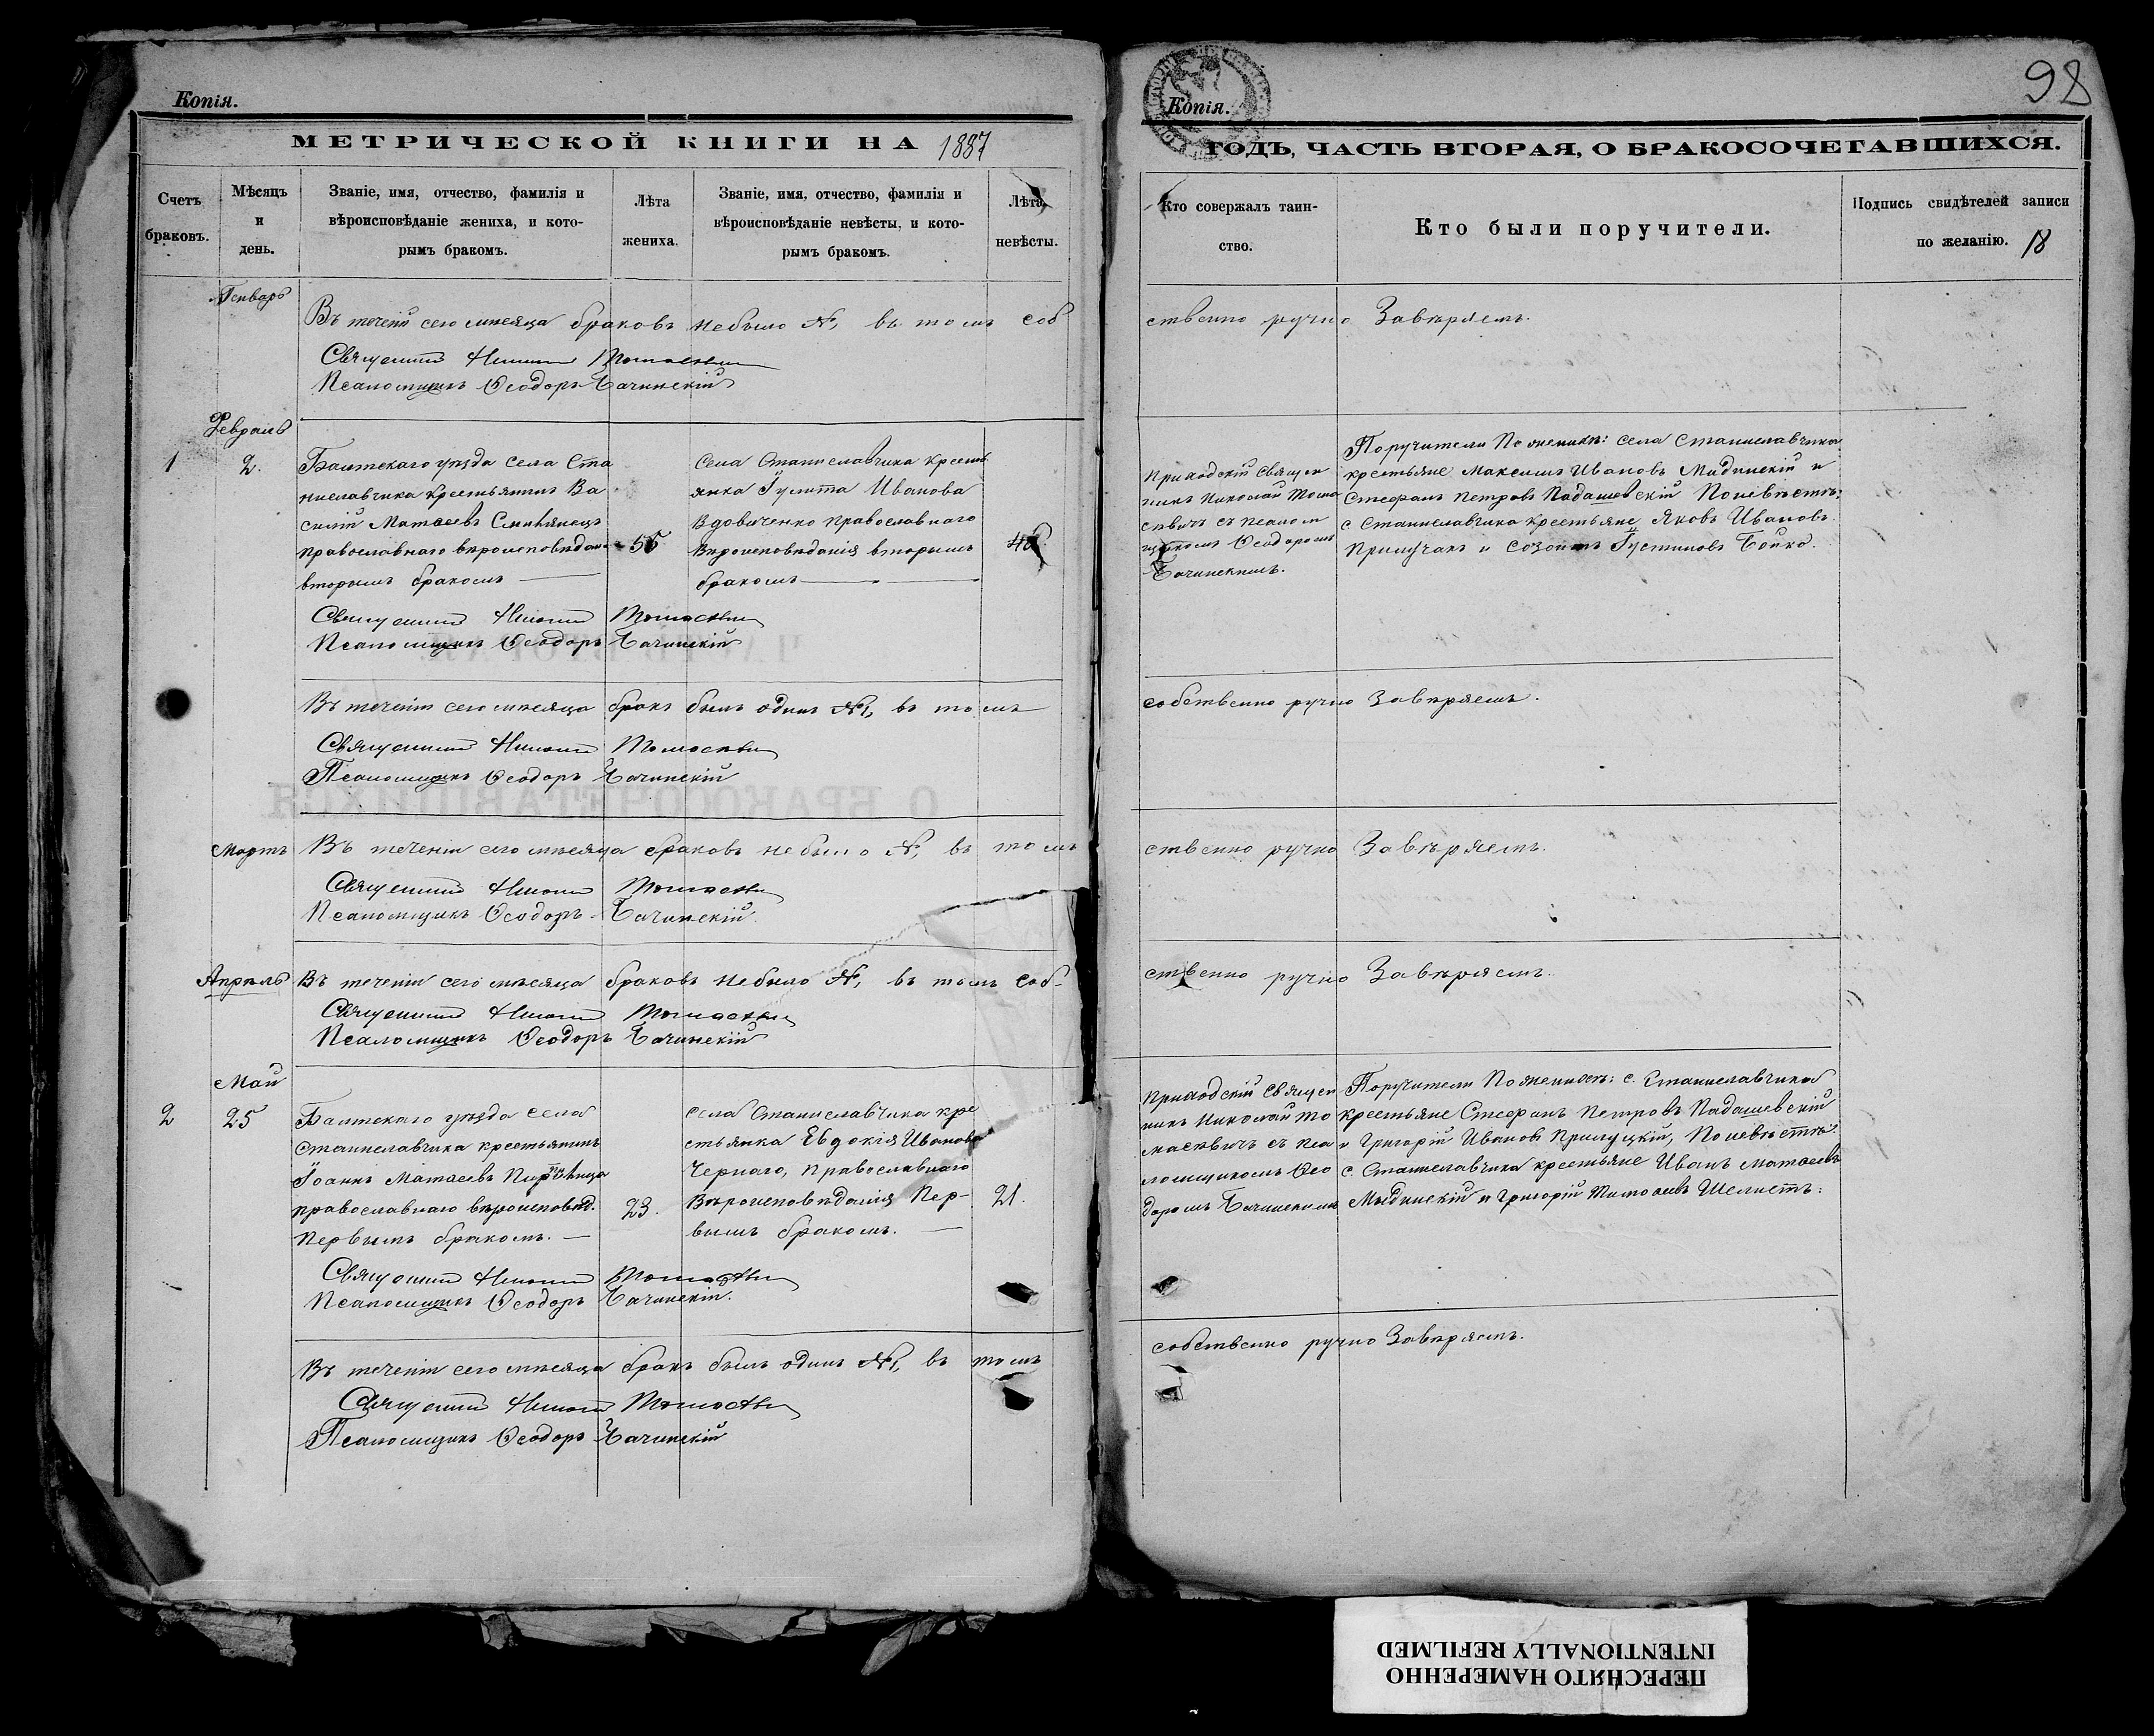 Копія.
МЕТРИЧЕСКОЙ КНИГИ НА 1887
Счетъ браковъ.
Мѣсяцъ и день.
Званіе, имя, отчество, фамилія и вѣроисповѣданіе жениха, и которымъ бракомъ.
Лѣта жениха.
Званіе, имя, отчество, фамилія и вѣроисповѣданіе невѣсты, и которымъ бракомъ.
Лѣта невѣсты.
Генварь
Въ теченіи сего мѣсяца браковъ небыло №, въ томъ соб
Священникъ Томасевич
Псаломщикъ Ѳеодоръ Бачинскій
Февраль
1
2.
Балтскаго уѣзда села Ста
ниславчика крестьянинъ Ва
силій Матѳеевъ
православнаго вѣроисповѣдан.
вторымъ бракомъ
55
Села Станиславчика крестья
янка Іулита Иванова
Вдовиченко православнаго
Вѣроисповѣданія вторымъ
бракомъ
Священникъ Томасевич
Псаломщикъ Ѳеодоръ Бачинскій
Въ теченіи сего мѣсяца бракъ былъ одинъ №1, въ томъ
Священникъ Томасевич
Псаломщикъ Ѳеодоръ Бачинскій
Мартъ
Въ теченіи сего мѣсяца браковъ небыло №, въ томъ
Священникъ Томасевич
Псаломщикъ Ѳеодоръ Бачинскій
Апрѣль
Въ теченіи сего мѣсяца браковъ небыло №, въ томъ соб-
Священникъ Томасевич
Псаломщикъ Ѳеодоръ Бачинскій
Май
2
25
Балтскаго уѣзда села
Станиславчика крестьянинъ
Іоаннъ Матѳеевъ
православнаго вѣроисповѣд.
Первымъ бракомъ.
23.
села Станиславчика кре
стьянка Евдокія Иванова
Чернаго, Православнаго
Вѣроисповѣданія Пер-
вымъ бракомъ.
21.
Священникъ Томасевич
Псаломщикъ Ѳеодоръ Бачинскій.
Въ теченіи сего мѣсяца бракъ былъ одинъ №1, въ томъ
Священникъ Томасевич
Псаломщикъ Ѳеодоръ Бачинскій
98
Копія.
ГОДЪ, ЧАСТЬ ВТОРАЯ, О БРАКОСОЧЕТАВШИХСЯ.
Кто совержалъ таинство.
Кто были поручители.
Подпись свидѣтелей записи по желанію.
18
ственно ручно Завѣряемъ.
Приходскій Священ
никъ Николай Тома
севичъ съ псалом
щикомъ Ѳеодоромъ
Бачинскимъ.
Поручители По женихѣ: села Станиславчика
крестьяне Максимъ Ивановъ Мидинскій и
Стефанъ Петровъ Падашевскій По невѣстѣ:
с Станиславчика крестьяне Яковъ Ивановъ
и Созонтъ Іустиновъ Бойко.
собственно ручно Завѣряемъ.
ственно ручно Завѣряемъ.
ственно ручно Завѣряемъ.
Приходскій Священ
никъ Николай То
масевичъ съ Пса
ломщикомъ Ѳео
доромъ Бачинскимъ
Поручители По женихѣ: с. Станиславчика
крестьяне Стефанъ Петровъ Падашевскій
и Григорій Ивановъ Прилуцкій, По невѣстѣ:
с. Станиславчика крестьяне Иванъ Матѳеевъ
Мидинскій и Григорій Тимоѳеевъ Шелестъ:
собственно ручно Завѣряемъ.
ПЕРЕСНЯТО НАМЕРЕННО
INTENTIONALLY REFILMED